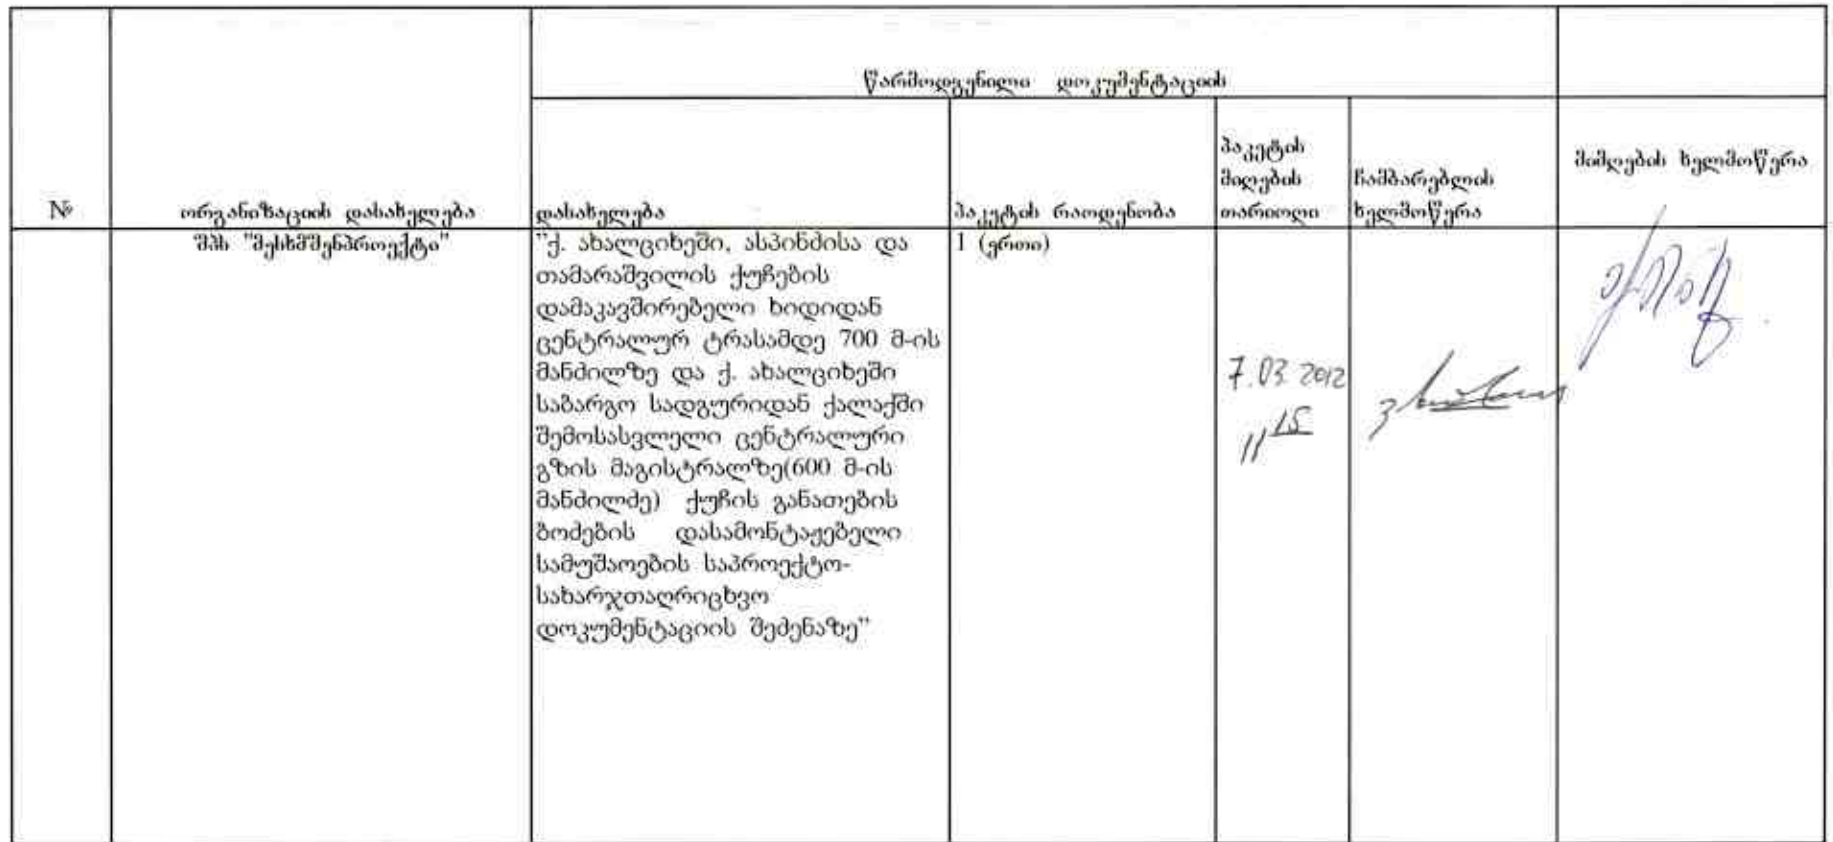 წარმოდგენილი დოკუმენტაციის
№
ორგანიზაციის დასახელება
დასახელება
პაკეტის რაოდენობა
პაკეტის
მიღების
თარიღი
ჩამბარებლის
ხელმოწერა
მიმღების ხელმოწერა
შპს "მესხმშენპროექტი"
"ქ. ახალციხეში, ასპინძისა და
თამარაშვილის ქუჩების
დამაკავშირებელი ხიდიდან
ცენტრალურ ტრასამდე 700 მ-ის
მანძილზე და ქ. ახალციხეში
საბარგო სადგურიდან ქალაქში
შემოსასვლელი ცენტრალური
გზის მაგისტრალზე(600 მ-ის
მანძილძე) ქუჩის განათების
ბოძების დასამონტაჟებელი
სამუშაოების საპროექტო-
სახარჯთაღრიცხვო
დოკუმენტაციის შეძენაზე"
1 (ერთი)
7.03.2012
11 15